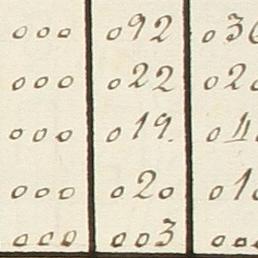 000 092 036
000 022 020
000 019.
000 020 010
000 003 000